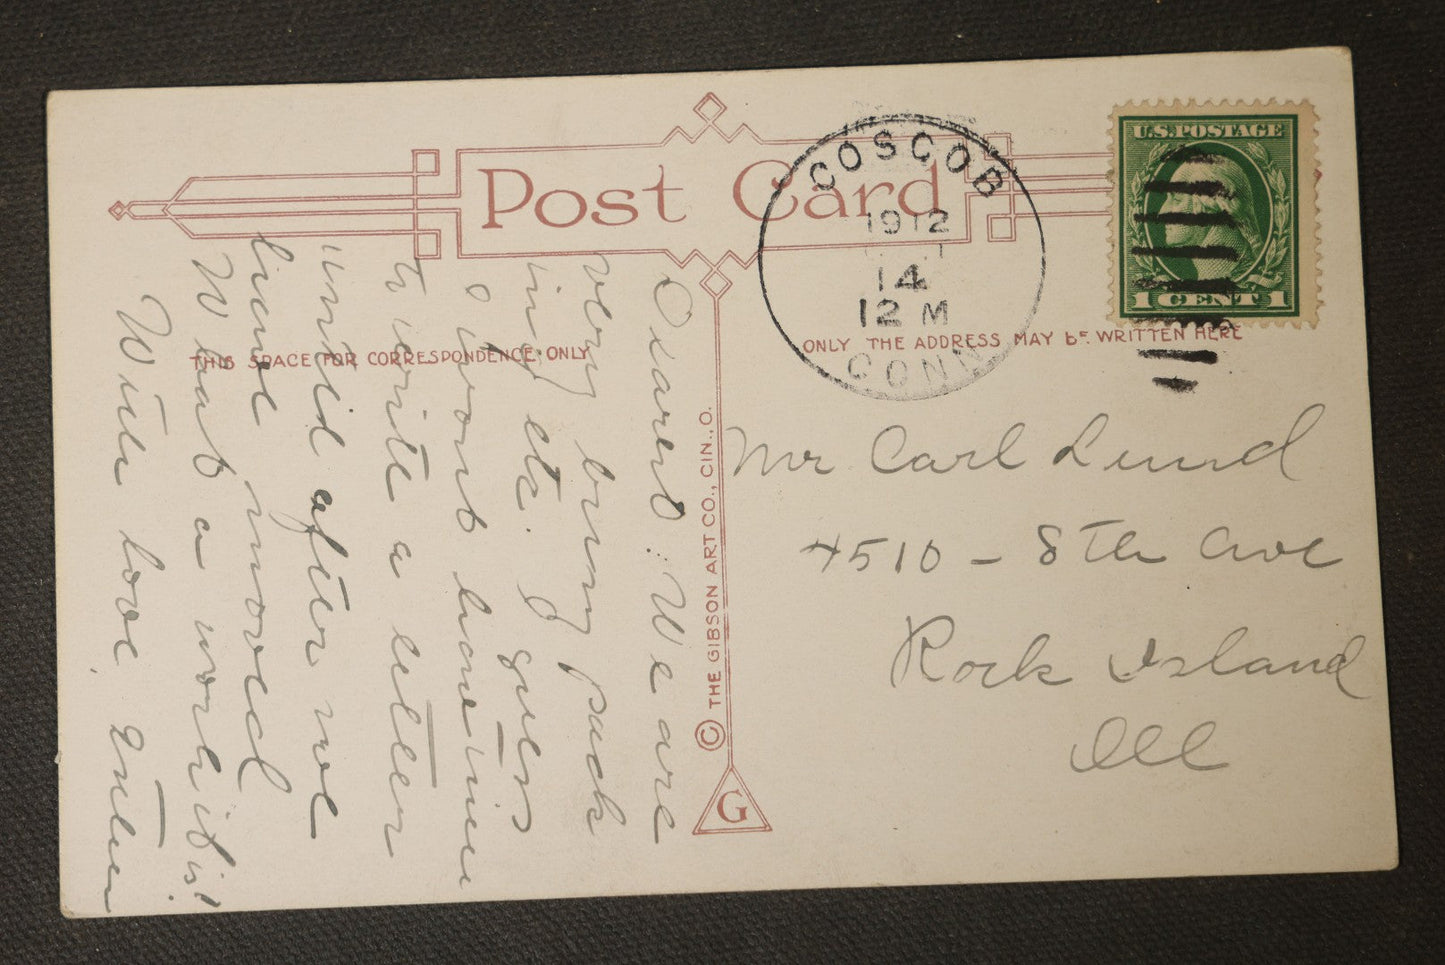 Post Card
THIS SPACE FOR CORRESPONDENCE ONLY
ONLY THE ADDRESS MAY BE WRITTEN HERE
© THE GIBSON ART CO., CIN., O.
G
COSCOB
1912
14
12 M
CONN
U.S. POSTAGE
1 CENT 1
Dearest: We are
very busy pack
ing etc. I guess
I wont have time
to write a letter
until after we
have moved
What a work it is!
With love
Mr Carl Lund
4510 - 8th Ave
Rock Island
Ill